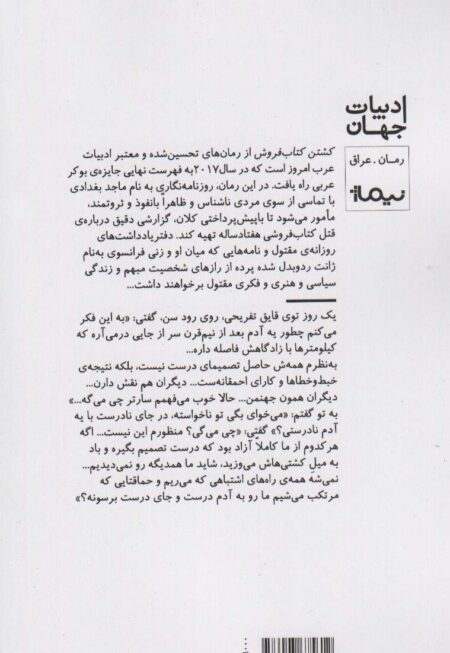 ادبیات
جهان
رمان . عراق
نیماژ
کشتن کتاب‌فروش از رمان‌های تحسین‌شده و معتبر ادبیات
عرب امروز است که در سال ۲۰۱۷ به فهرست نهایی جایزه‌ی بوکر
عربی راه یافت. در این رمان، روزنامه‌نگاری به نام ماجد بغدادی
با تماسی از سوی مردی ناشناس و ظاهراً بانفوذ و ثروتمند،
مأمور می‌شود تا باپیش‌پرداختی کلان، گزارشی دقیق درباره‌ی
قتل کتاب‌فروشی هفتادساله تهیه کند. دفتریادداشت‌های
روزانه‌ی مقتول و نامه‌هایی که میان او و زنی فرانسوی به‌نام
ژانت ردوبدل شده پرده از رازهای شخصیت مبهم و زندگی
سیاسی و هنری و فکری مقتول برخواهند داشت...
یک روز توی قایق تفریحی، روی رود سن، گفتی: «به این فکر
می‌کنم چطور یه آدم بعد از نیم‌قرن سر از جایی درمی‌آره که
کیلومترها با زادگاهش فاصله داره...
به‌نظرم همه‌ش حاصل تصمیمای درست نیست، بلکه نتیجه‌ی
خبط‌وخطاها و کارای احمقانه‌ست... دیگران هم نقش دارن...
دیگران همون جهنمن... حالا خوب می‌فهمم سارتر چی می‌گه...»
به تو گفتم: «می‌خوای بگی تو ناخواسته، در جای نادرست با یه
آدم نادرستی؟» گفتی: «چی می‌گی؟ منظورم این نیست... اگه
هرکدوم از ما کاملاً آزاد بود که درست تصمیم بگیره و باد به
میل کشتی‌هاش می‌وزید، شاید ما همدیگه رو نمی‌دیدیم...
نمی‌شه همه‌ی راه‌های اشتباهی که می‌ریم و حماقتایی که
مرتکب می‌شیم ما رو به آدم درست و جای درست برسونه؟»